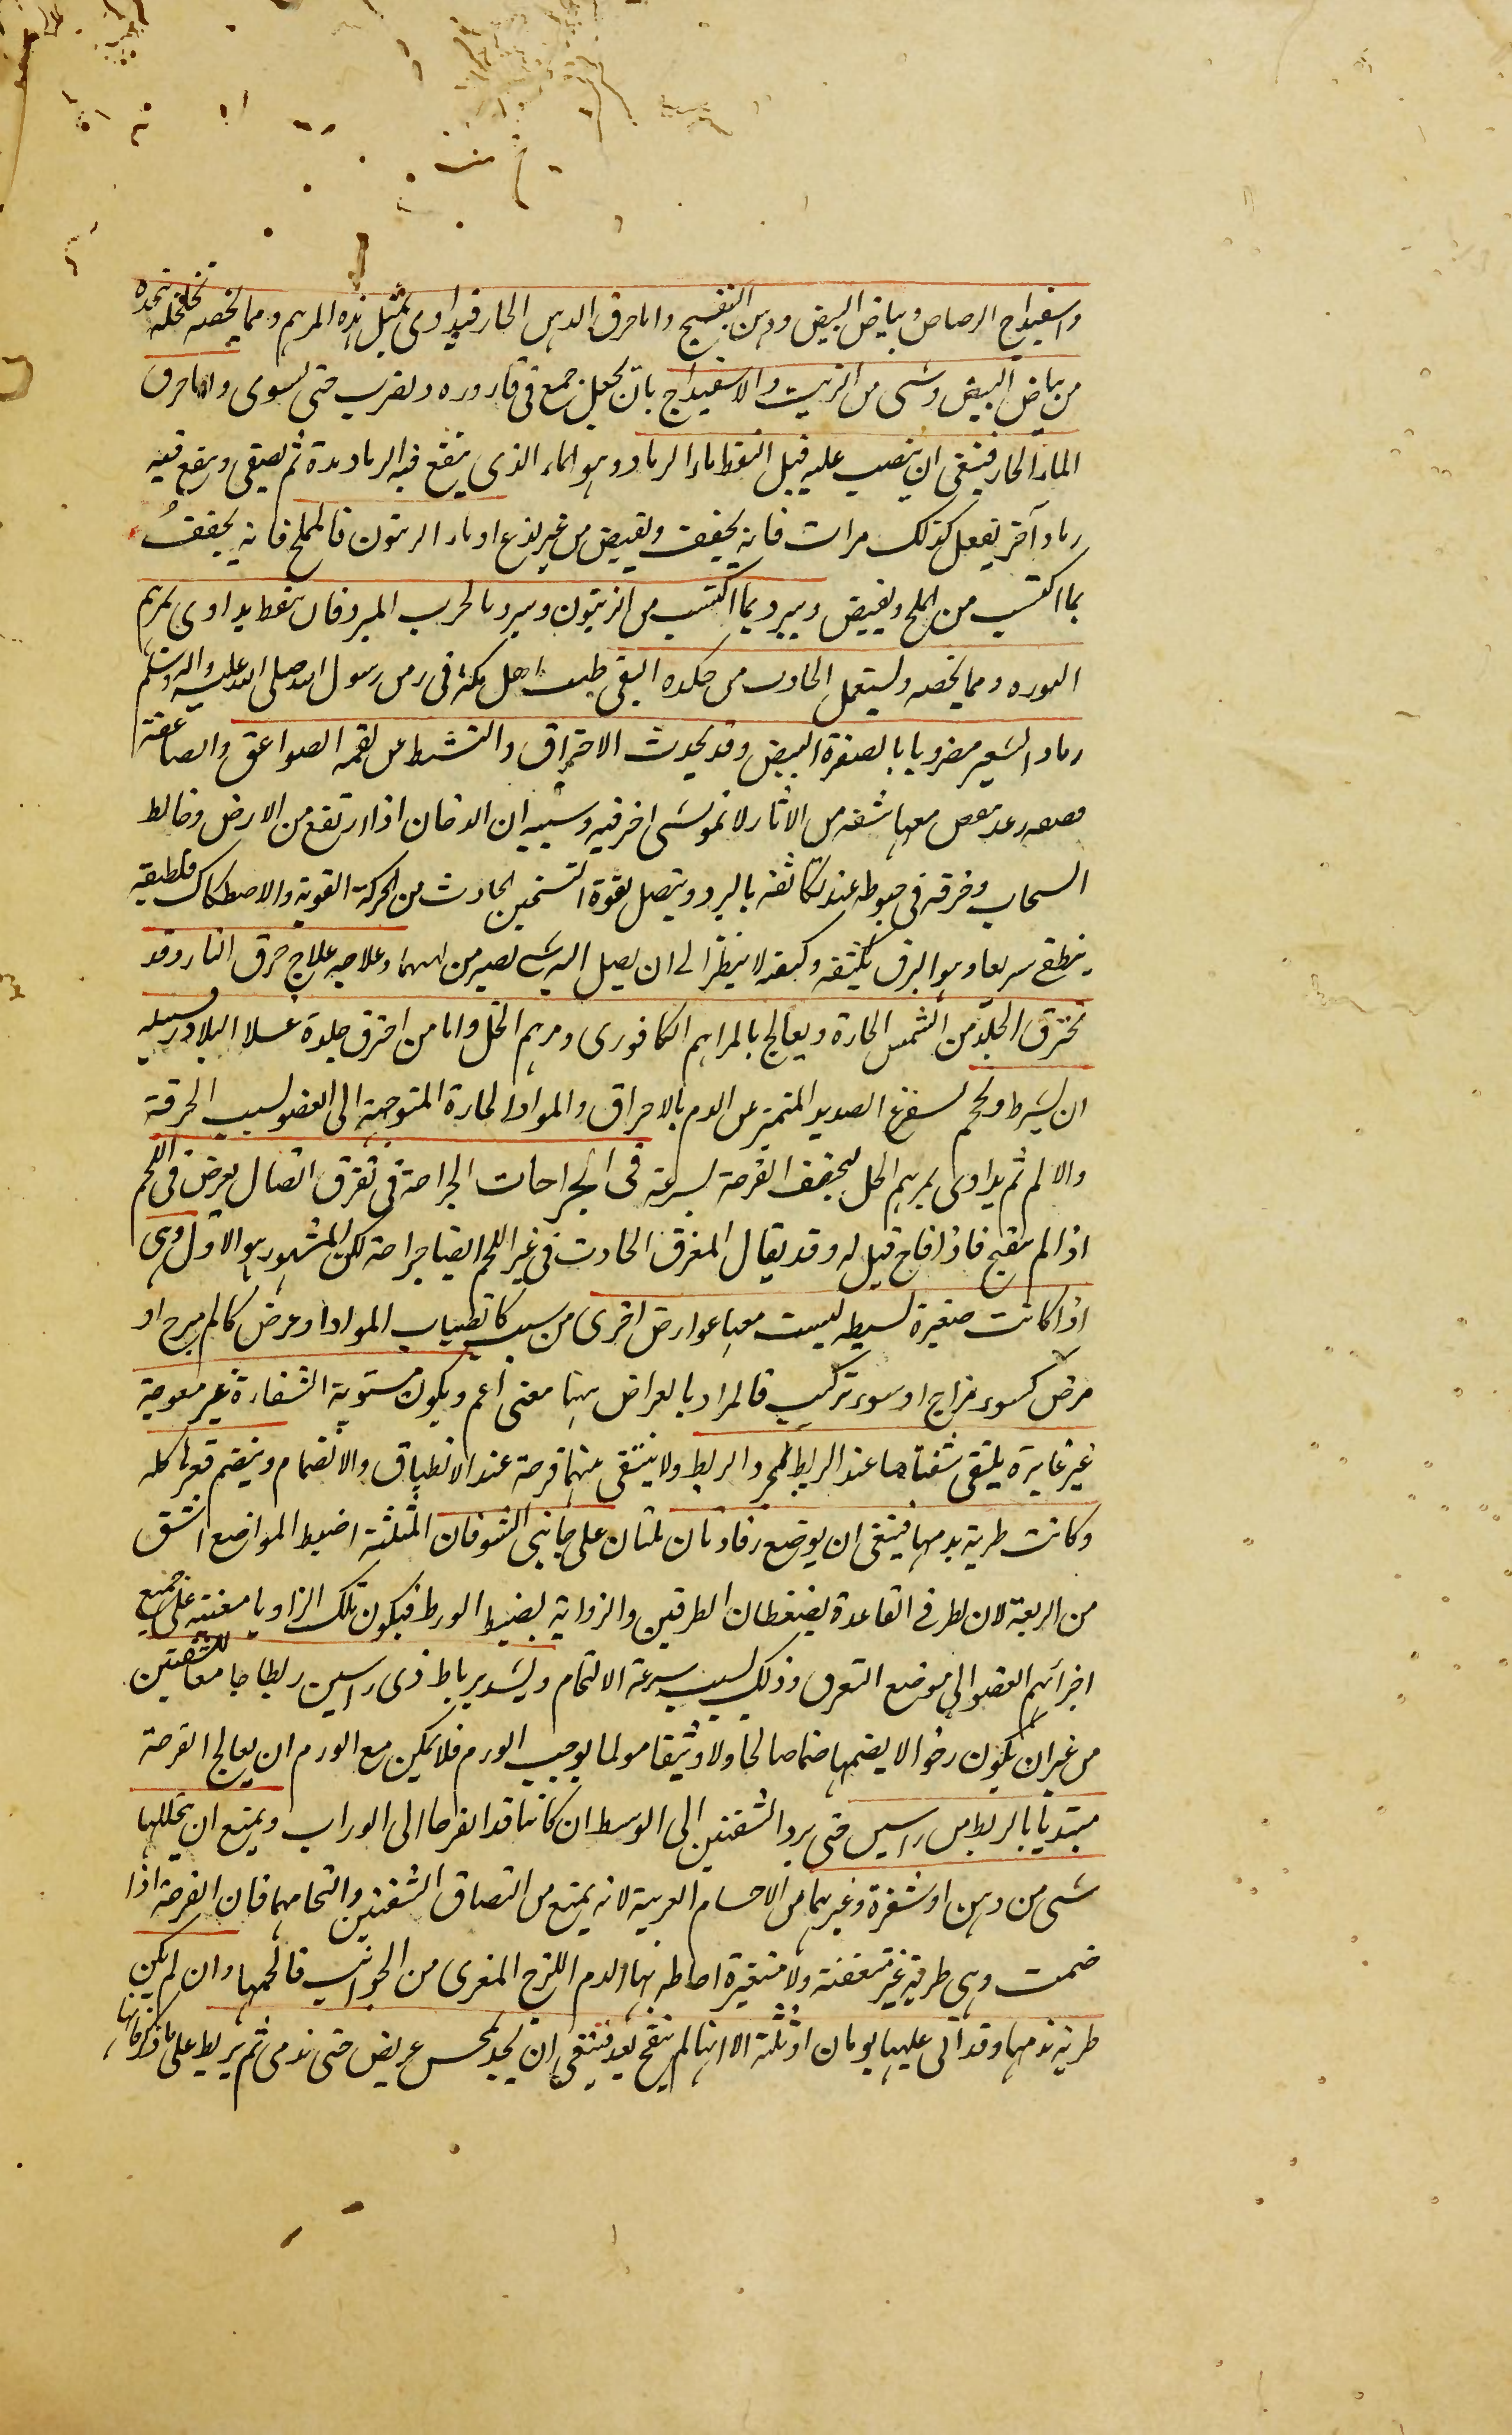 واسفيداج الرصاص وبياض البيض ودهن البنفسج واما حرق الدهن الحار فيداوى بمثل هذه المرهم ومما يخصه تتخذه
من بياض البيض وشى من الزيت والاسفيداج بان يجعل جميع فى قاروره ويضرب حتى يسوى واما حرق
الماء الحار فينبغى ان ينصب عليه قبل النفط ماء الرماد وهو الماء الذى ينقع فيه الرماد مدة ثم يصفى وينقع فيه
رماد آخر يفعل كذلك مرات فانه يجفف ويقبض من غير لذع او ماء الزيتون فالمملح فانه يجفف
بما اكتسب من الملح ويقبض ويبرد بما اكتسب من الزيتون ويبرد بالحرب المبرد فان تنفط يداوى بمرهم
النوره ومما يخصه ويستعمل الحارث من كلده الثقفى طبيب اهل مكه فى زمن رسول الله صلى الله عليه واله وسلم
رماد الشعير مضروبا بالصفرة البيض وقد يحدث الاحتراق والتشيط عن لقمه الصواعق والصاعقة
قصفه رعد ينقض معها شقه من الاثار لا تمر بشى احرقته وسببه ان الدخان اذا ارتفع من الارض وخالط
السحاب وخرقه فى هبوطه عند تكاثفه بالبرد ويتصل بقوة التسخين الحادث من الحركة القوية والاصطكاك فلطيفه
ينطفئ سريعا وهو البرق وكثيفه لا ينطفئ الى ان يصل اليه وعلاجه علاج حرق النار وقد
يحترق الجلد من الشمس الحارة ويعالج بالمراهم الكافورى ومرهم الخل واما من احترق جلده عسلا البلادر سبيله
ان يشرط ويحجم ليستفرغ الصديد المتميز عن الدم بالاحراق والمواد الحارة المتوجهة الى العضو بسبب الحرقة
والالم ثم يداوى بمرهم الخل ليجفف القرحة بسرعة فى الجراحات الجراحة فى تفرق اتصال يعرض فى اللحم
اذا لم يتقيح فاذا قاح قيل له وقد يقال المتفرق الحادث فى غير اللحم ايضا جراحة لكن المشهور هو الاول وهى
اذا كانت صغيرة بسيطه ليست معها عوارض اخرى من سبب كانصباب المواد او عرض كالم مبرح او
مرض كسوء مزاج او سوء تركيب فالمراد بالعراض ههنا معنى اعم ويكون مستوية الشفارة غير معوجة
غير غايرة يلتقى شفتاها عند الربط لمجرد الربط ولا يبقى بينهما فرجة عند الانطباق والانضمام وينضم قعرها كله
وكانت طرية بدمها فينبغى ان يوضع رفادتان مثلثان على جانبى الشق فان المثلثة اضبط المواضع الشق
من الربعة لان طرفى القاعدة يضغطان الطرفين والزواية يضبط الوسط فيكون تلك الزاويا معينة على جميع
اجزائهم العضو الى موضع التفرق وذلك بسبب سرعة الالتحام ويشد برباط ذى راسين ربطا جامعا للشفتين
من غير ان يكون رخوا لا يضمها ضما صالحا ولا وثيقا مولما يوجب الورم فلا يمكن مع الورم ان يعالج القرحة
مبتديا بالربط من راسين حتى يرد الشفتين الى الوسط ان كانتا قد انفرجا الى الوراب ويمنع ان يتخللها
شى من دهن او شعرة وغيرهما من الاجسام الغريبة لانه يمنع من التصاق الشفتين والتحامهما فان القرحة اذا
ضمت وهى طرية غير متعفنة ولا متغيرة احاطه بها الدم اللزج المغرى من الجوانب فالحمها وان لم يكن
طرية بدمها وقد اتى عليها يومان او ثلثة الا انها لم يتقح بعد فينبغى ان يحك بمجس عريض حتى تدمى ثم يربط على ما ذكرناها